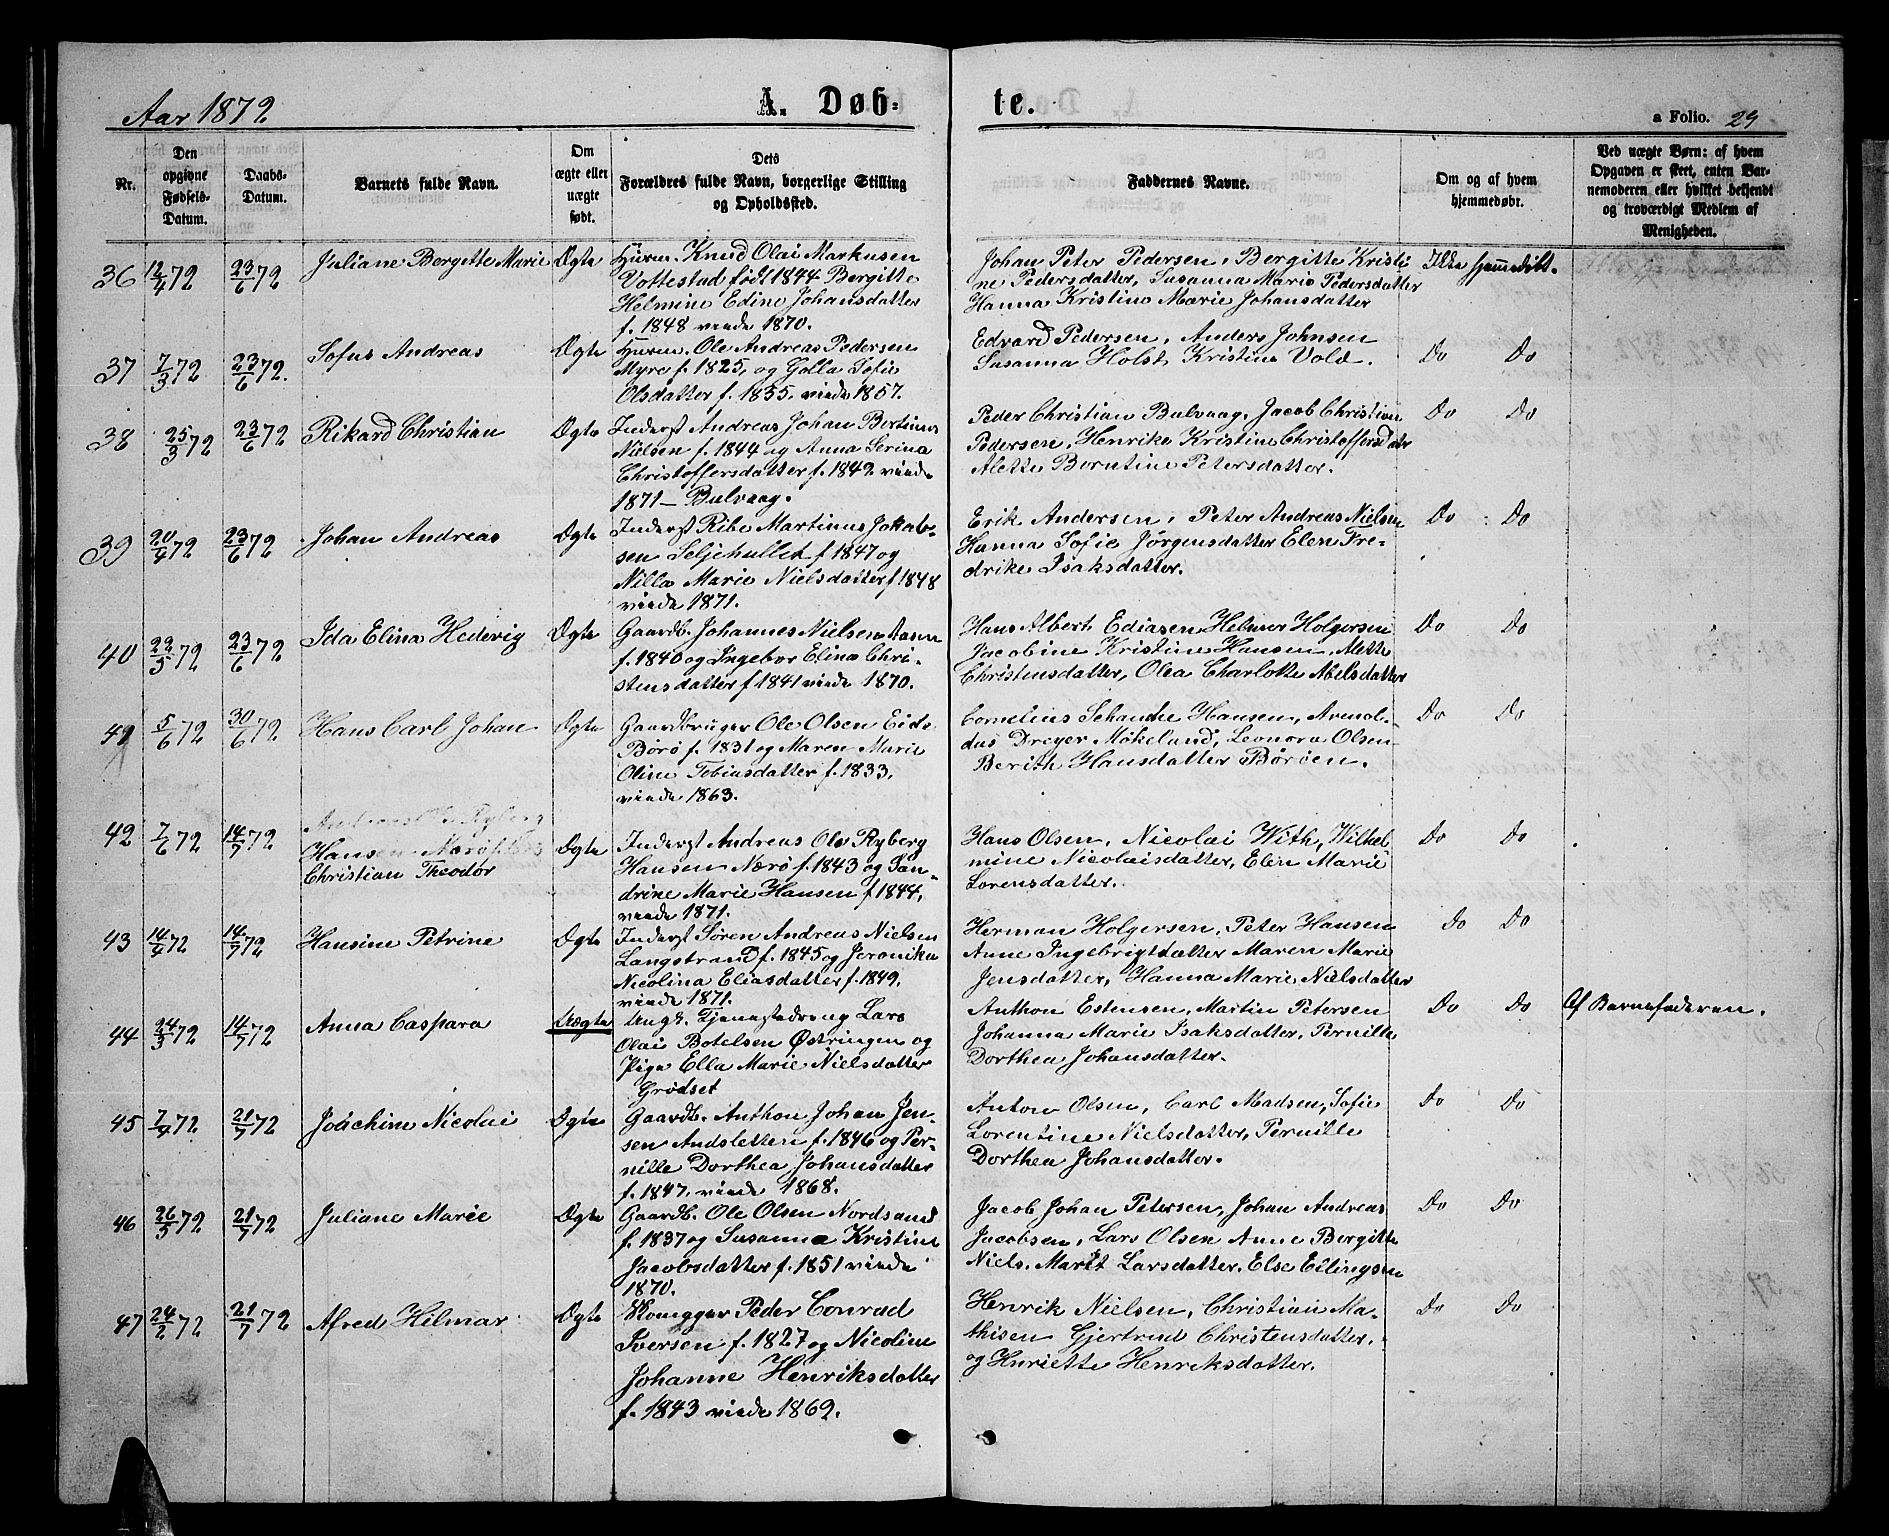 Aar 1872
A. Døb-
te.
a Folio. 29
Nr.
Den opgivne Fødsels-Datum.
Daabs-Datum.
Barnets fulde Navn.
Om ægte eller uægte født.
Dets Forældres fulde Navn, borgerlige Stilling og Opholdssted.
Faddernes Navne.
Om og af hvem hjemmedøbt.
Ved uægte Børn: af hvem Opgaven er skeet, enten Barnemoderen eller hvilket bekjendt og troværdigt Medlem af Menigheden.
36 12/4 72 23/6 72 Juliane Bergitte Marie Ægte Husm. Knud Olai Markusen
Vottestad født 1844 Bergitte
Helmine Edine Johansdatter
f. 1848 viede 1870.
Johan Peter Pedersen, Bergitte Kristi
ne Pedersdatter, Susanna Marie Pedersdatter
Hanna Kristine Marie Johansdatter
Ikke hjemmedøbt.
37 7/3 72 23/6 72. Sofus Andreas Ægte Husm. Ole Andreas Pedersen
Myre f. 1825, og Golla Sofie
Olsdatter f. 1835. viede 1857.
Edvard Pedersen, Anders Johnsen
Susanna Holst Kristine Vold.
Do Do
38 25/3 72 23/6 72 Rikard Christian Ægte Inderst Andreas Johan Bertinus
Nielsen f. 1844 og Anna Serina
Christoffersdatter f. 1842 viede
1871 - Bulvaag.
Peder Christian Bulvaag, Jacob Christian
Pedersen, Henrike Kristine Christoffersdatr
Alette Berntine Petersdatter.
Do Do
39 20/4 72 23/6 72 Johan Andreas Ægte Inderst Ribe Martinus Jakob-
sen Seljehullet f. 1847 og
Nilla Marie Nielsdatter f 1848
viede 1871.
Erik Andersen, Peter Andreas Nielsen
Hanna Sofie Jørgensdatter Elen Fre-
drike Isaksdatter.
Do Do
40 22/5 72 23/6 72 Ida Elina Hedevig Ægte Gaardb. Johannes Nielsen Aasen
f. 1840 og Ingebor Elina Chri-
stensdatter f 1841 viede 1870.
Hans Albert Ediasen Helmer Holgersen
Jacobine Kristine Hansen, Mette
Christensdatter, Olea Charlotte Abelsdatter
Do Do
41 5/6 72 30/6 72 Hans Carl Johan Ægte Gaardbruger Ole Olsen Eids
Børø f. 1831 og Maren Marie
Oline Tobiasdatter f. 1833.
viede 1863.
Cornelius Schanche Hansen, Arenol-
dus Dreyer Møkeland, Leonora Olsen
Berith Hansdatter Børøen.
Do Do
42 7/6 72 14/7 72 Ryberg
Hansen Nærø
Christian Theodor
Ægte Inderst Andreas Ole Ryberg
Hansen Nærø f. 1843 og San-
drine Marie Hansen f 1844.
viede 1871.
Hans Olsen, Nicolai With, Wilhel
mine Nicolaisdatter, Elen Marie
Lorensdatter.
Do Do
43 14/4 72 14/7 72 Hansine Petrine Ægte Inderst Søren Andreas Nielsen
Langstrand f. 1845 og Jeronika
Nicolina Eliasdatter f. 1849.
viede 1871.
Herman Holgersen, Peter Hansen
Anne Ingebrigtdatter Maren Marie
Jensdatter, Hanna Marie Nielsdatter
Do Do
44 24/3 72 14/7 72 Anna Caspara Uægte Ungk. Tjenestedreng Lars
Olai Botelsen Østringen og
Pige Ella Marie Nielsdatter
Grødset
Anthon Estensen, Martin Petersen
Johanna Marie Isaksdatter, Pernille
Dorthea Johansdatter.
Do Do Af Barnefaderen.
45 7/4 72 21/7 72 Joachine Nicolai Ægte Gaardb. Anthon Johan Jen-
sen Andsletten f. 1846 og Per-
nille Dorthea Johansdatter
f. 1847. viede 1868.
Anton Olsen, Carl Madsen, Sofie
Lorentine Nielsdatter, Pernille
Dorthea Johansdatter.
Do Do
46 26/5 72 21/7 72 Juliane Marie Ægte Gaardb. Ole Olsen Nordsand
f. 1837 og Susanna Kristine
Jacobsdatter f. 1851 viede
1870.
Jacob Johan Petersen, Johan Andreas
Jacobsen, Lars Olsen Anne Bergitte
Niels. Marit Larsdatter. Else Ellingsen
Do Do
47 24/2 72 21/7 72 Afred Hilmar Ægte Skomager Peder Conrad
Iversen f. 1827 og Nicoline
Johanne Henriksdatter
f. 1843 viede 1862.
Henrik Nielsen, Christian Ma-
thisen Gjertrud Christensdatter.
og Henriette Henriksdatter.
Do Do